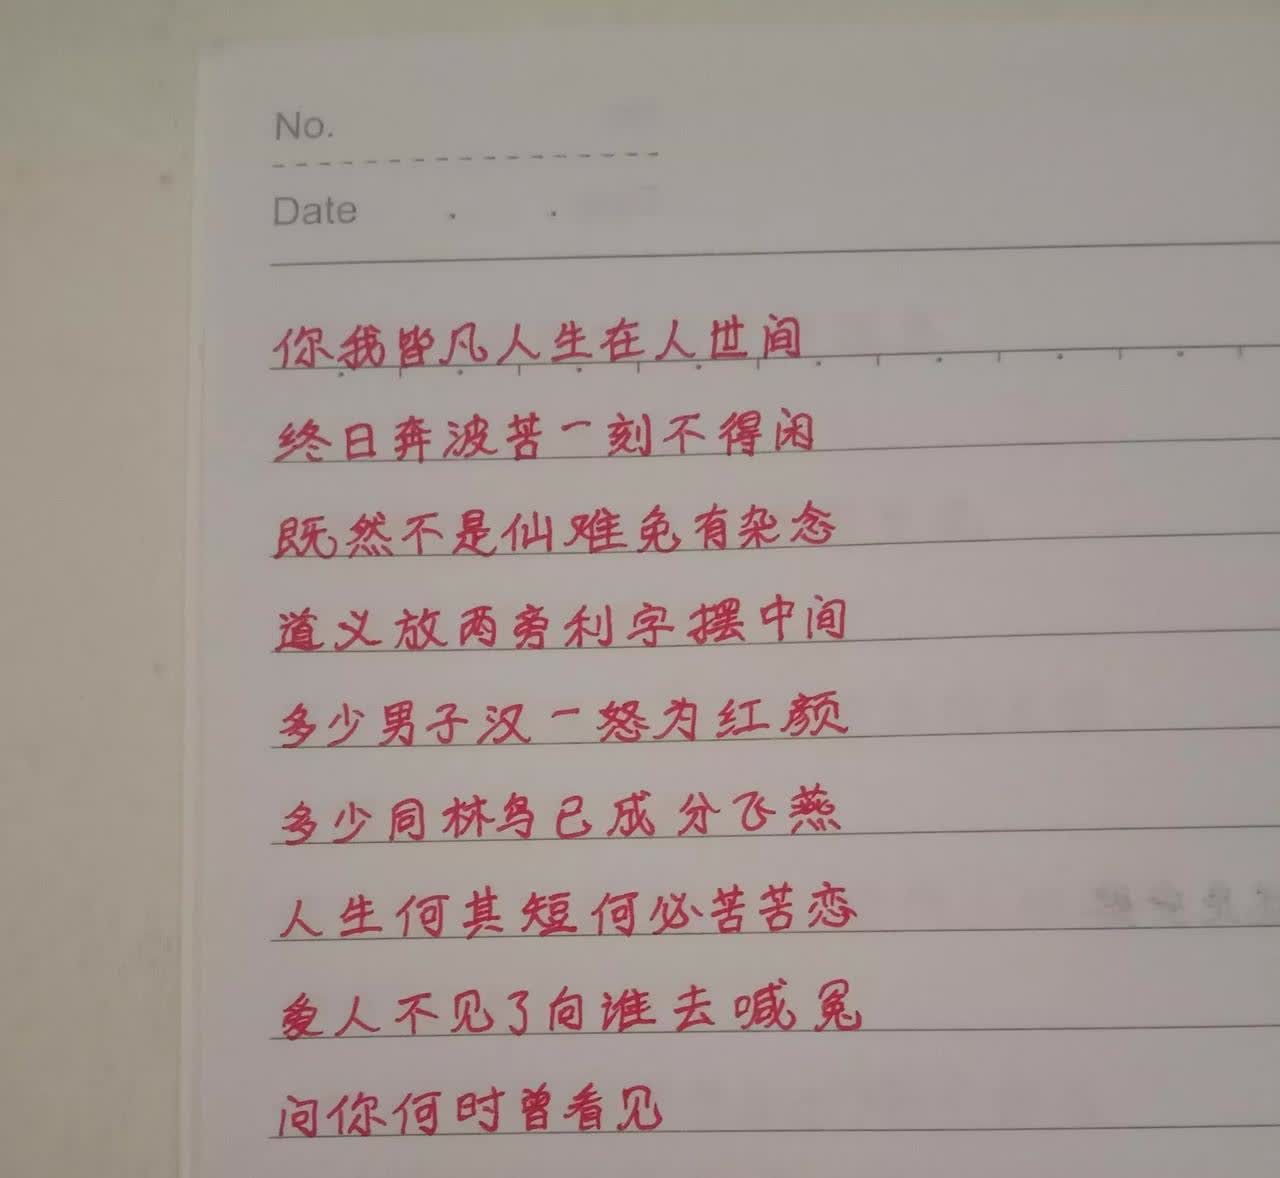 No.
Date . .
你我皆凡人生在人世间
终日奔波苦一刻不得闲
既然不是仙难免有杂念
道义放两旁利字摆中间
多少男子汉一怒为红颜
多少同林鸟已成分飞燕
人生何其短何必苦苦恋
爱人不见了向谁去喊冤
问你何时曾看见